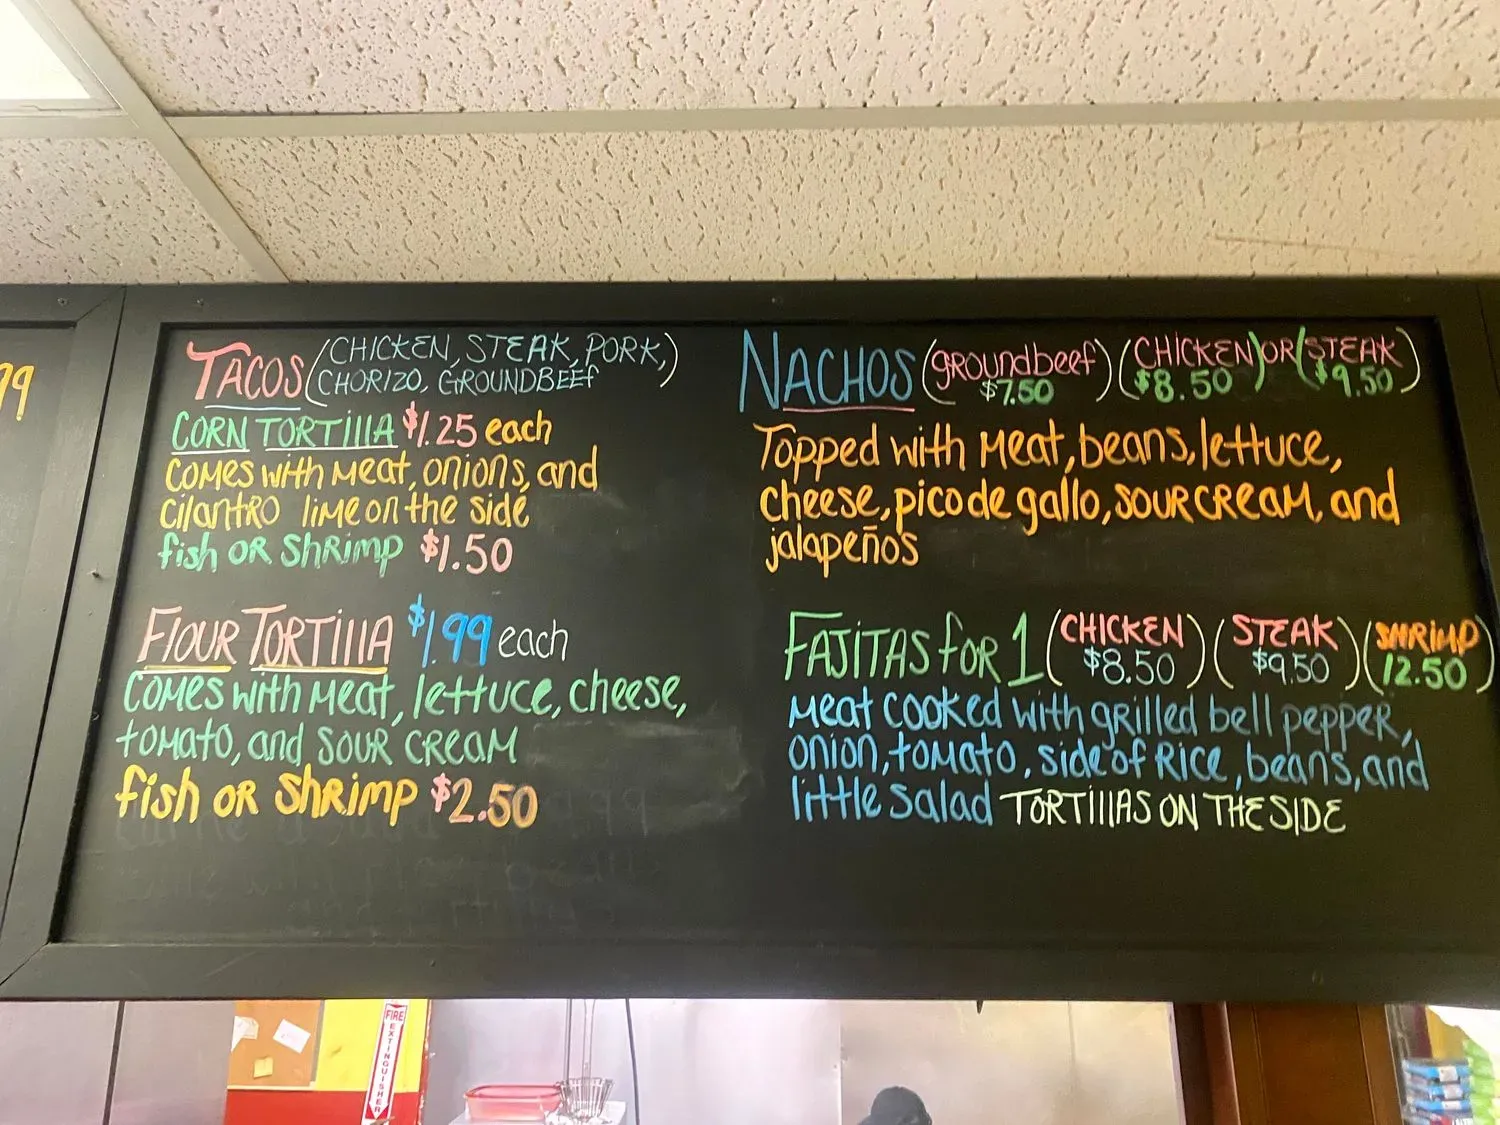 99
TACOS (CHICKEN, STEAK, PORK,)
CHORIZO, GROUNDBEEF
CORN TORTILLA $1.25 each
comes with meat, onions, and
cilantro lime on the side
fish or shrimp $1.50
FLOUR TORTILLA $1.99 each
comes with meat, lettuce, cheese,
tomato, and sour cream
fish or shrimp $2.50
NACHOS (groundbeef) (CHICKEN) OR (STEAK)
$7.50 $8.50 $9.50
Topped with meat, beans, lettuce,
cheese, pico de gallo, sour cream, and
jalapeños
FAJITAS FOR 1 (CHICKEN) (STEAK) (SHRIMP)
$8.50 $9.50 12.50
meat cooked with grilled bell pepper,
onion, tomato, side of rice, beans, and
little salad TORTILLAS ON THE SIDE
FIRE
EXTINGUISHER